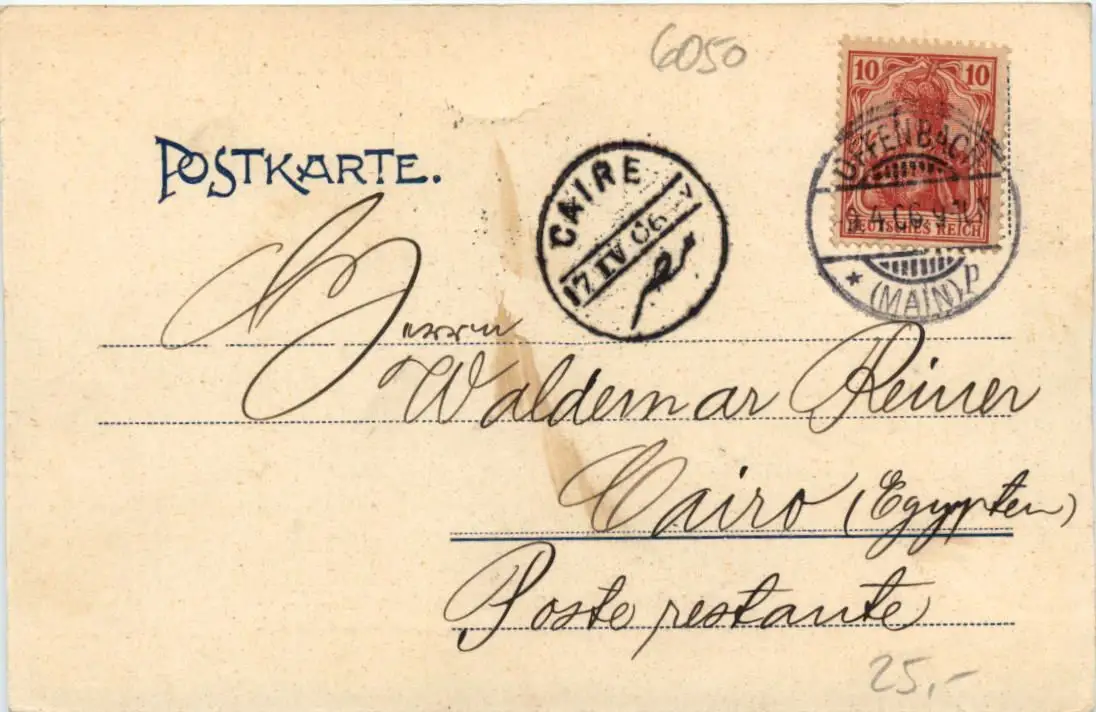 6050
10 10
DEUTSCHES REICH
OFFENBACH
4.06.9
* (MAIN) p
POSTKARTE.
CAIRE
7.IV 06
Herrn
Waldemar Reiner
Cairo (Egypten)
Poste restante
25,-